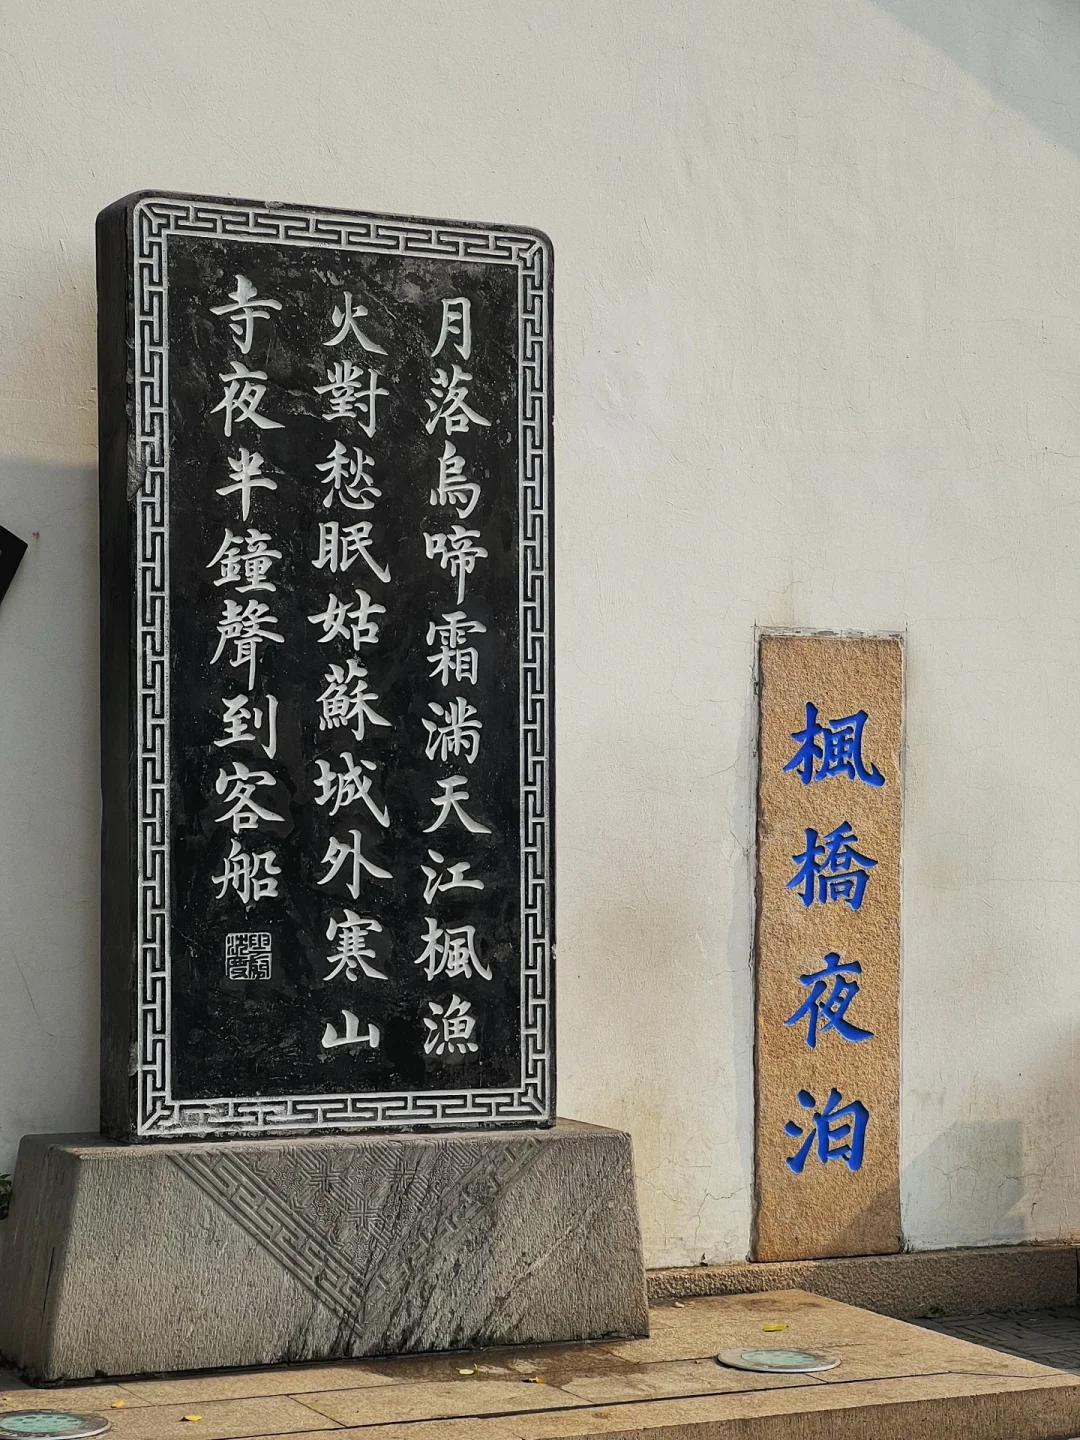 月落烏啼霜滿天江楓漁
火對愁眠姑蘇城外寒山
寺夜半鐘聲到客船
楓橋夜泊